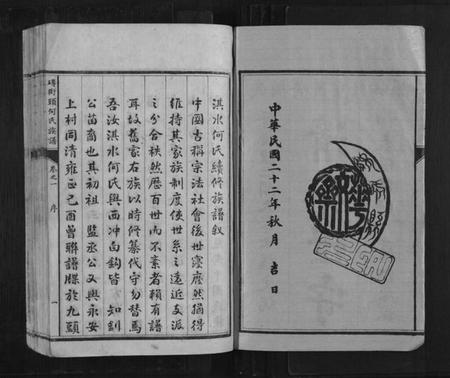 中華民國二十二年秋月 吉日
淇水何氏續修族譜叙
中國古稱宗法社會後世寖廢然猶得
維持其家族制度使世系之遠近支派
之分合秩然歷百世而不紊者賴有譜
耳故舊家右族以時修纂代守勿替焉
吾汝淇水何氏與西冲白鈎皆 知釗
公苗裔也其初祖 監丞公又與永安
上村同清雍正己酉曾聯譜牒於九顯
何氏族譜
卷之一 序
一